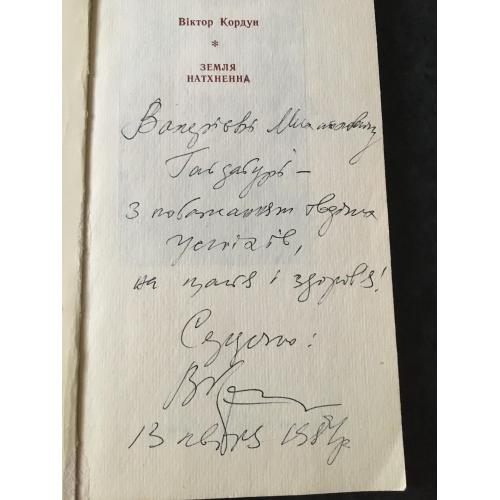 Віктор Кордун
*
ЗЕМЛЯ
НАТХНЕННА
Валерієві Михайловичу
Гайдабурі –
З побажанням творчих
успіхів,
на щастя і здоров'я!
Сердечно:
13 квітня 1984р